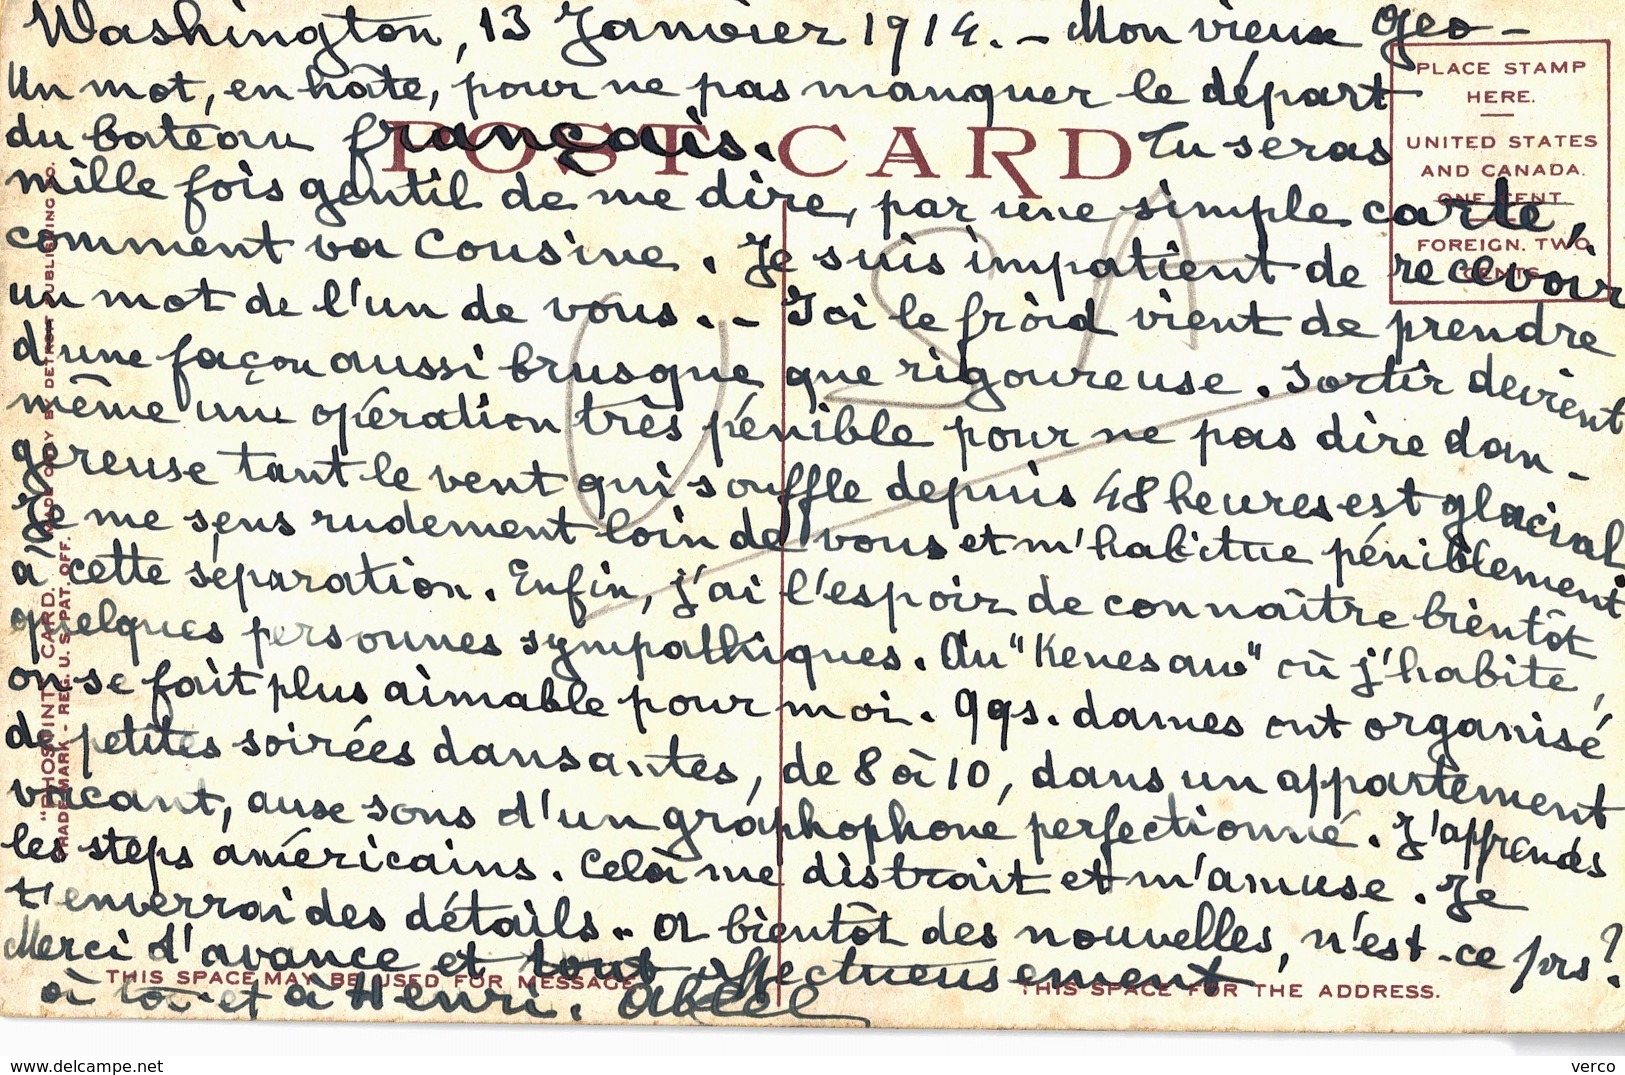 Washington, 13 Janvier 1914. - Mon vieux Geo -
Un mot, en hâte, pour ne pas manquer le départ
du bateau français. Tu seras
mille fois gentil de me dire, par une simple carte,
comment va Cousine. Je suis impatient de recevoir
un mot de l'un de vous. - Ici le froid vient de prendre
d'une façon aussi brusque que rigoureuse. Sortir devient
même une opération très pénible pour ne pas dire dan-
gereuse tant le vent qui souffle depuis 48 heures est glacial
Je me sens rudement loin de vous et m'habitue péniblement
à cette séparation. Enfin, j'ai l'espoir de connaître bientôt
quelques personnes sympathiques. Au "Kenesaw" où j'habite,
on se fait plus aimable pour moi. Qqs. dames ont organisé
de petites soirées dansantes, de 8 à 10, dans un appartement
vacant, aux sons d'un graphophone perfectionné. J'apprends
les steps américains. Cela me distrait et m'amuse. Je
t'enverrai des détails. A bientôt des nouvelles, n'est-ce pas?
Merci d'avance et tout affectueusement
à toi et à Henri. Abel
POST CARD
PLACE STAMP
HERE.
UNITED STATES
AND CANADA.
ONE CENT
FOREIGN. TWO
CENTS
USA
"PHOSTINT" CARD. MADE ONLY BY DETROIT PUBLISHING CO.
TRADE MARK - REG. U. S. PAT. OFF.
THIS SPACE MAY BE USED FOR MESSAGE
THIS SPACE FOR THE ADDRESS.
www.delcampe.net
verco